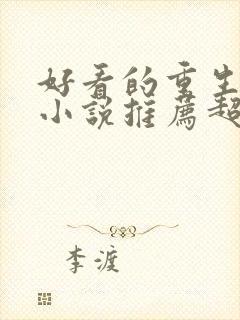 好看的重生
小说推薦超
李渡